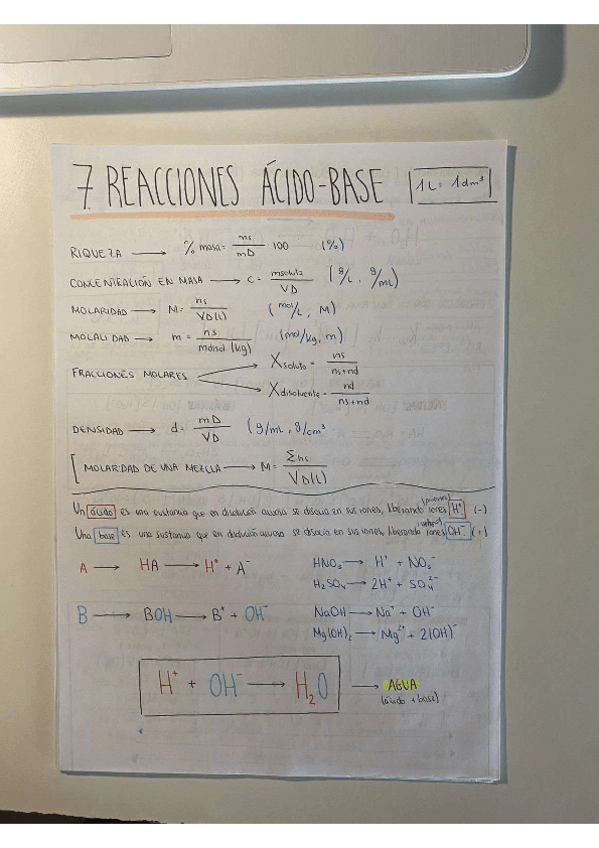 7 REACCIONES ÁCIDO-BASE 1L = 1dm³
RIQUEZA → % masa = ms/mD · 100 (%)
CONCENTRACIÓN EN MASA → C = msoluto/VD (g/L, g/mL)
MOLARIDAD → M = ns/VD(L) (mol/L, M)
MOLALIDAD → m = ns/mdisol (kg) (mol/kg, m)
FRACCIONES MOLARES → Xsoluto = ns/ns+nd
→ Xdisolvente = nd/ns+nd
DENSIDAD → d = mD/VD (g/mL, g/cm³
[ MOLARIDAD DE UNA MEZCLA → M = Σns/VD(L)
Un ácido es una sustancia que en disolución acuosa se disocia en sus iones, liberando iones H⁺ (-)
Una base es una sustancia que en disolución acuosa se disocia en sus iones, liberando iones OH⁻
A → HA → H⁺ + A⁻
HNO₃ → H⁺ + NO₃⁻
H₂SO₄ → 2H⁺ + SO₄²⁻
B → BOH → B⁺ + OH⁻
NaOH → Na⁺ + OH⁻
Mg(OH)₂ → Mg²⁺ + 2(OH)⁻
H⁺ + OH⁻ → H₂O → AGUA
(ácido + base)